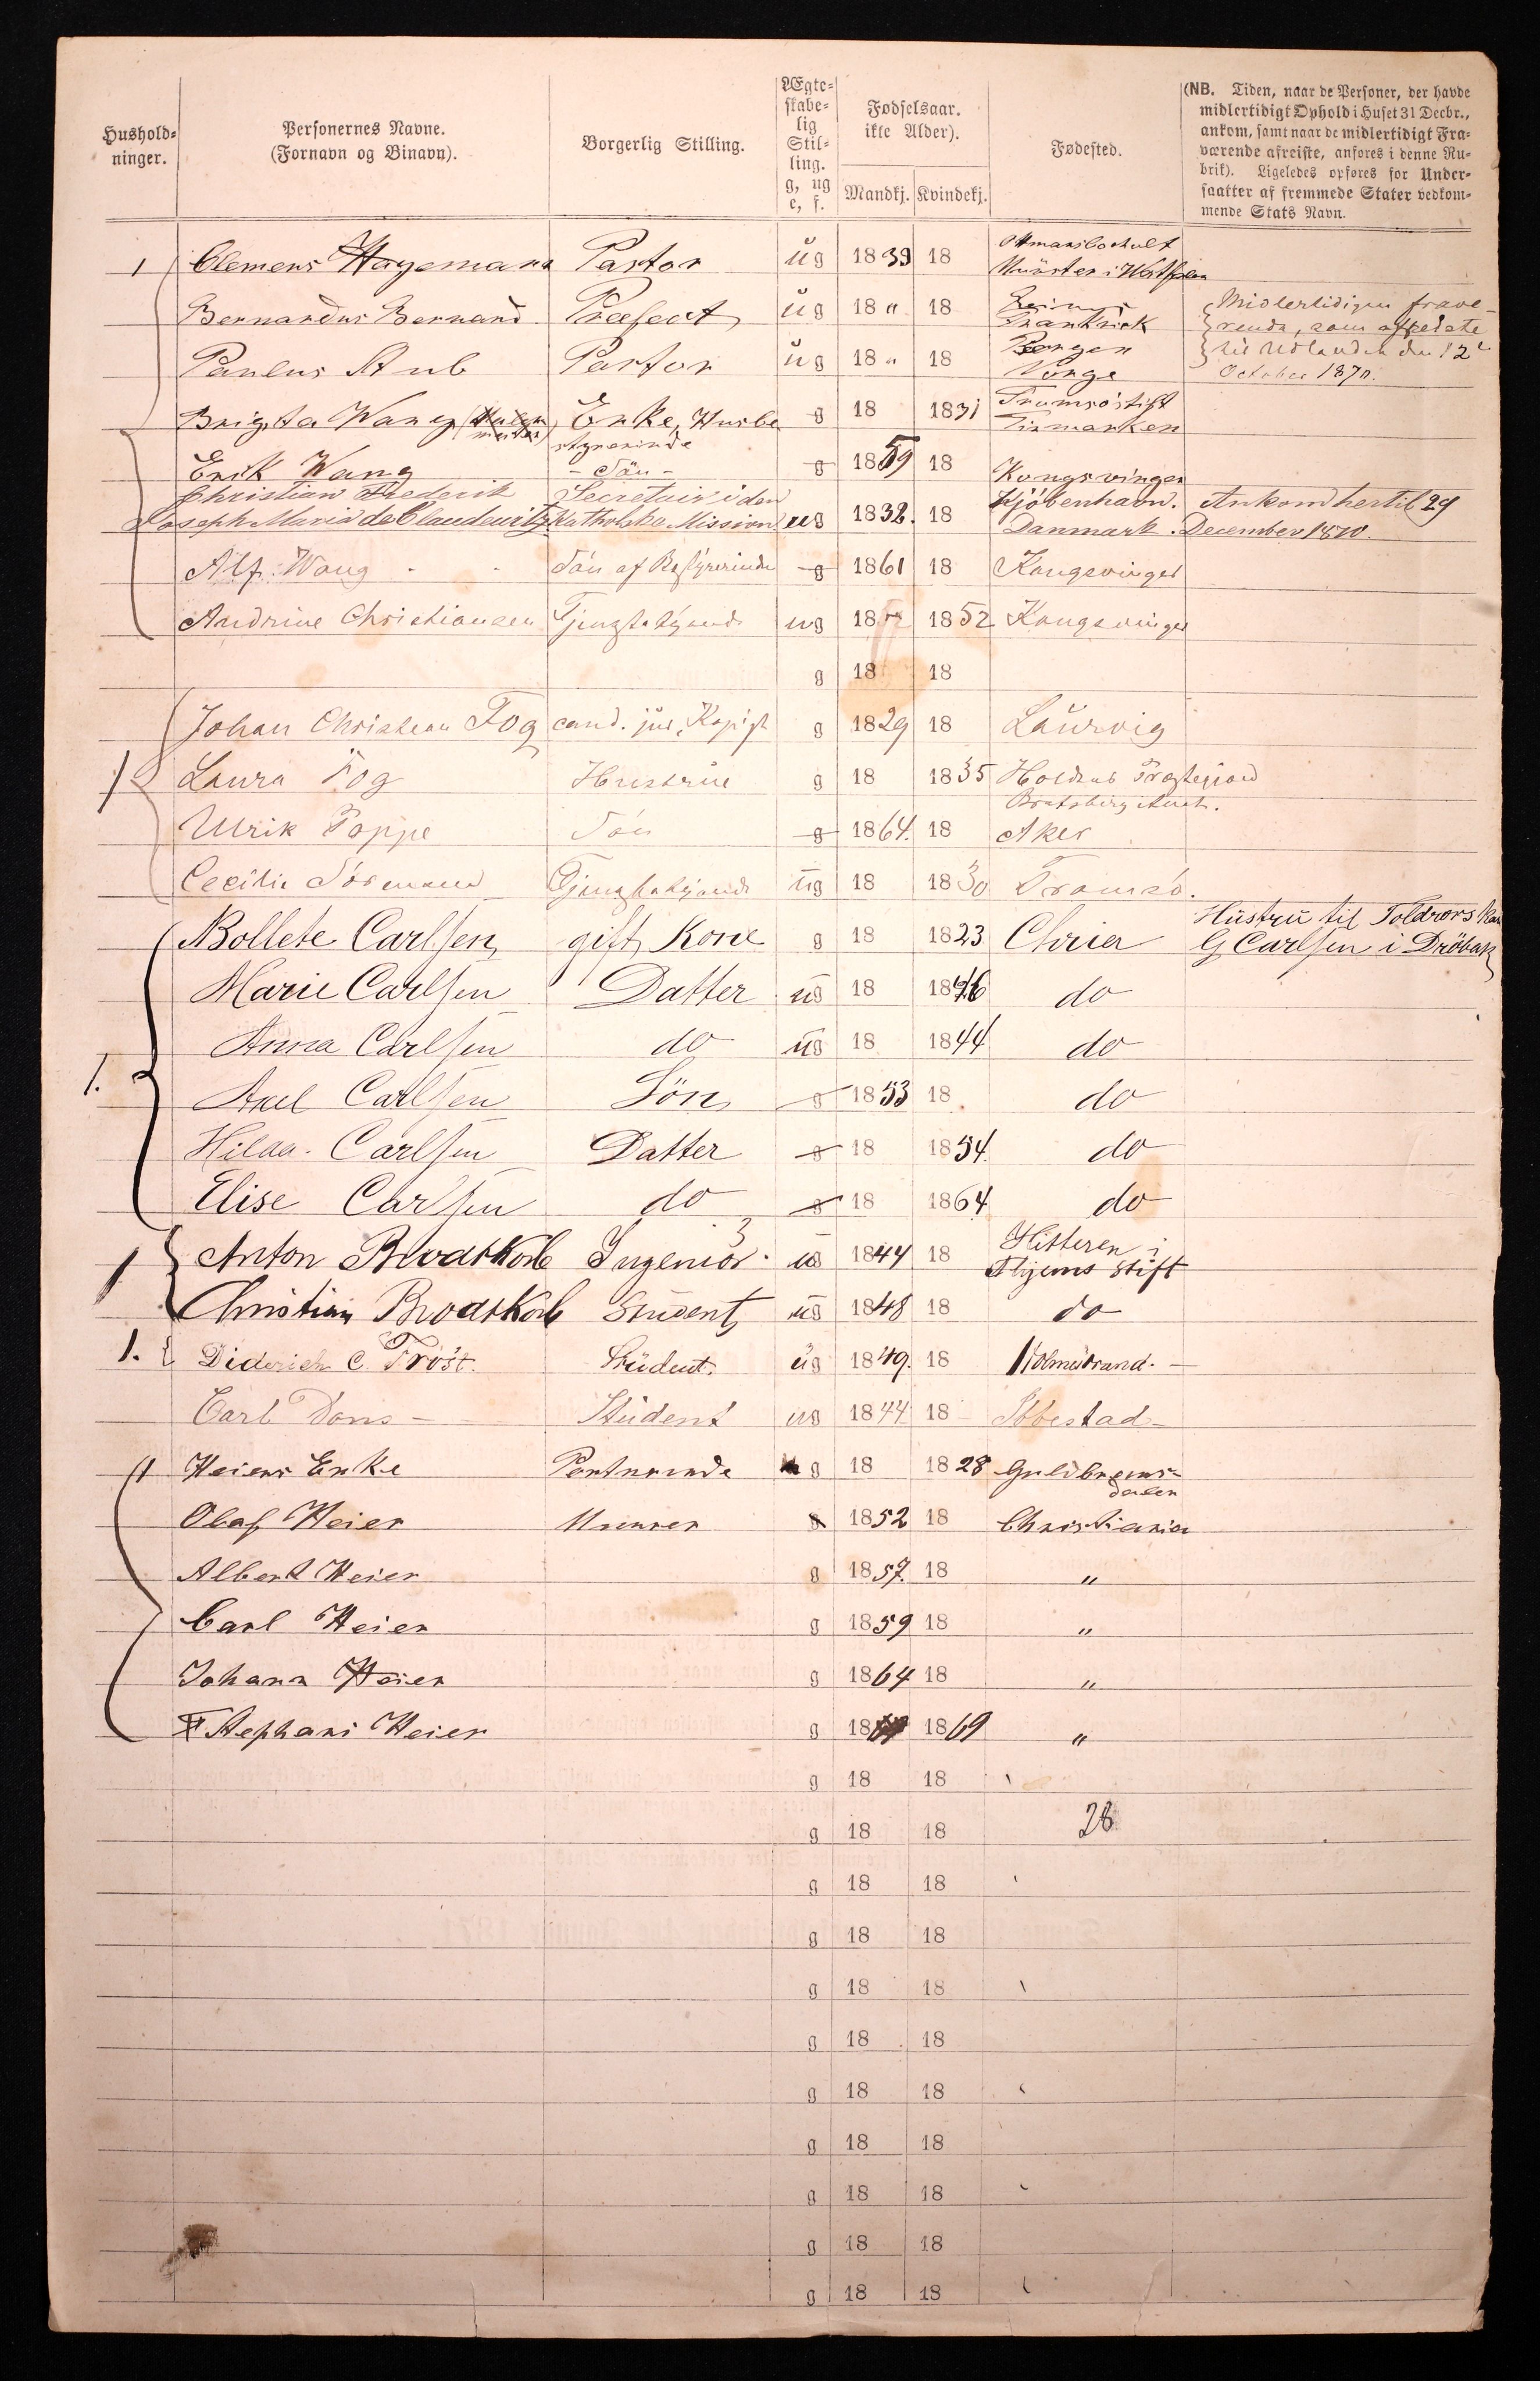 Hushold-
ninger.
Personernes Navne.
(Fornavn og Binavn).
Borgerlig Stilling.
Ægte-
skabe-
lig
Stil-
ling.
g, ug
e, f.
Fødselsaar.
ikke Alder).
Mandkj. Kvindekj.
Fødested.
(NB. Tiden, naar de Personer, der havde
midlertidigt Ophold i Huset 31 Decbr.,
ankom, samt naar de midlertidigt Fra-
værende afreiste, anføres i denne Ru-
brik). Ligeledes opføres for Under-
saatter af fremmede Stater vedkom-
mende Stats Navn.
1 Clemens Hagemann Pastor ug 1839 18 Münster i Westfalen
Bernardus Bernard Præfect ug 18 " 18 Frankrick Midlertidigen frave-
Paulus Stub Pastor ug 18 " 18 Bergen Norge rende, som afreiste til Udlandet den 12
October 1870.
Brigita Wang Enke, Husbe styrerinde g 18 1831 Tromsö stift Finmarken
Erik Wang - Sön - g 1859 18 Kongsvinger
Christian Frederik Secretair i den Kjöbenhavn. Ankom hertil 29
Joseph Maria de Claudewitz Katholske Mission. ug 1832. 18 Danmark. December 1870.
Alf. Wang Sön af Bestyrerinde g 1861 18 Kongsvinger
Andrine Christiansen Tjenestetyende ug 18 1852 Kongsvinger
g 18 18
Johan Christian Fog cand. jur, Kopist g 1829 18 Laurvig
1 Laura Fog Hustrue g 18 1835 Holden Præstegjeld
Bratsberg Amt.
Ulrik Poppe Sön g 1864. 18 Aker
Cecilie Sörmand Tjenestetyende ug 18 1830 Tromsö.
Bollete Carlsen gift Kone g 18 1823 Chria Hustru til Toldrorskar
G Carlsen i Dröbak
Marie Carlsen Datter ug 18 1846 do
Anna Carlsen do ug 18 1844 do
1. Axel Carlsen Sön g 1853 18 do
Hilda. Carlsen Datter g 18 1854. do
Elise Carlsen do g 18 1864 do
1 Anton Brodtkorb Ingeniör. ug 1844 18 Hitteren i
Thjems Stift
Christian Brodtkorb Student ug 1848 18 do
1. Diderich C. Fröst. Student. ug 1849. 18 Holmestrand. -
Carl Dons - Student ug 1844 18 Ibbestad -
1 Heiers Enke Portnerinde g 18 1828 Guldbrems-
dalen
Olaf Heier Murer g 1852 18 Christiania
Albert Heier g 1857. 18 "
Carl Heier g 1859 18 "
Johann Heier g 1864 18 "
Stephani Heier g 18 1869 "
g 18 18
g 18 18 28
g 18 18
g 18 18
g 18 18
g 18 18
g 18 18
g 18 18
g 18 18
g 18 18
g 18 18